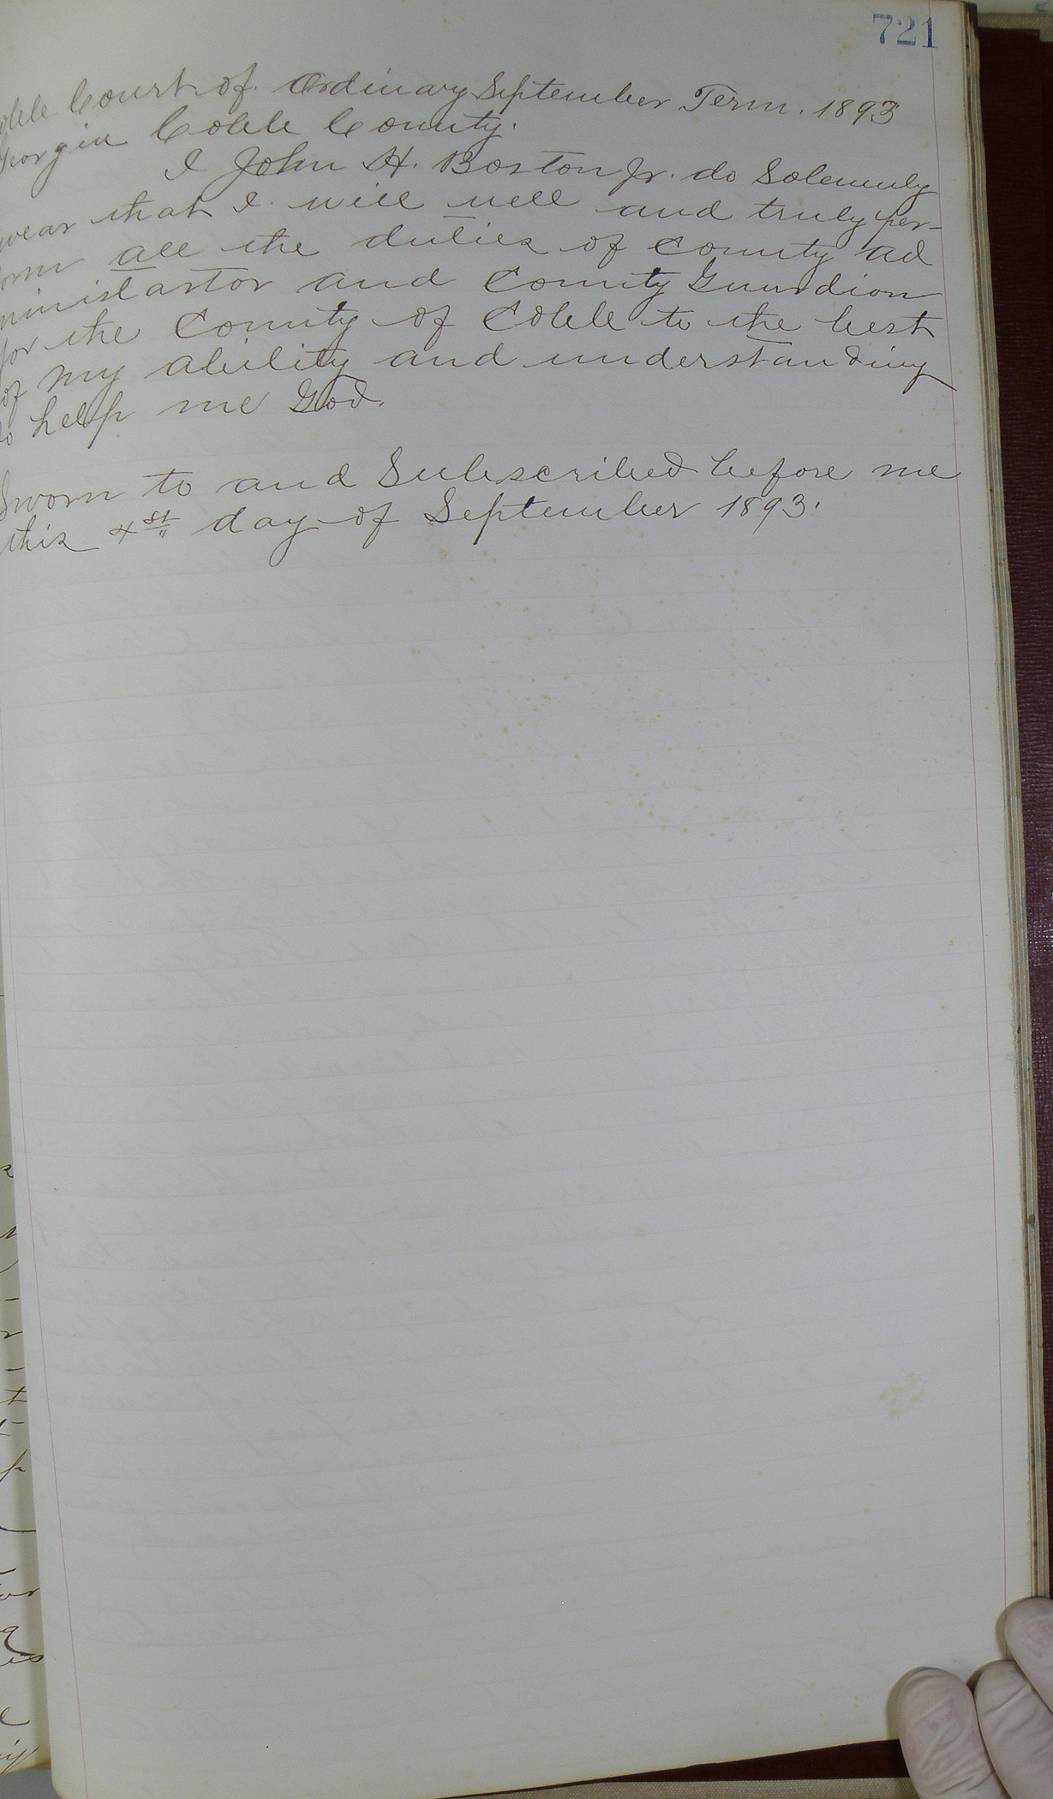 721
obb Court of Ordinary September Term. 1893
Georgia Cobb County.
I John H. Boston Jr. do Solemnly
swear that I will well and truly per-
form all the duties of County ad
ministartor and County Guardion
for the County of Cobb to the best
of my ability and understanding
so help me God.
Sworn to and Subscribed before me
this 4st day of September 1893.